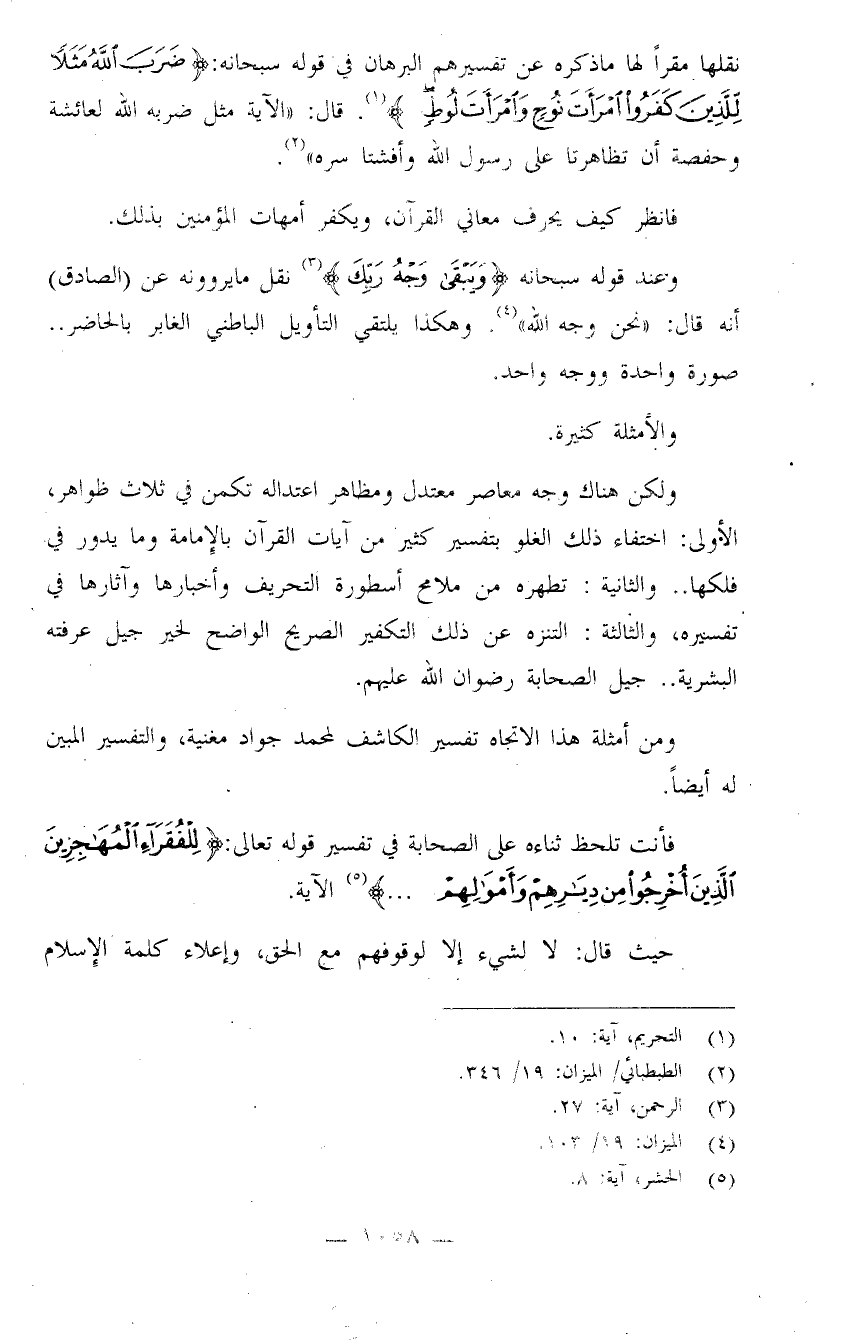 نقلها مقراً لها ماذكره عن تفسيرهم البرهان في قوله سبحانه: ﴿ ضَرَبَ ٱللَّهُ مَثَلًا
لِّلَّذِينَ كَفَرُواْ ٱمْرَأَتَ نُوحٍ وَٱمْرَأَتَ لُوطٍۖ ﴾(١). قال: «الآية مثل ضربه الله لعائشة
وحفصة أن تظاهرتا على رسول الله وأفشتا سره»(٢).
فانظر كيف يحرف معاني القرآن، ويكفر أمهات المؤمنين بذلك.
وعند قوله سبحانه ﴿وَيَبْقَىٰ وَجْهُ رَبِّكَ ﴾(٣) نقل مايروونه عن (الصادق)
أنه قال: «نحن وجه الله»(٤). وهكذا يلتقي التأويل الباطني الغابر بالحاضر..
صورة واحدة ووجه واحد.
والأمثلة كثيرة.
ولكن هناك وجه معاصر معتدل ومظاهر اعتداله تكمن في ثلاث ظواهر،
الأولى: اختفاء ذلك الغلو بتفسير كثير من آيات القرآن بالإمامة وما يدور في
فلكها.. والثانية : تطهره من ملامح أسطورة التحريف وأخبارها وآثارها في
تفسيره، والثالثة : التنزه عن ذلك التكفير الصريح الواضح لخير جيل عرفته
البشرية.. جيل الصحابة رضوان الله عليهم.
ومن أمثلة هذا الاتجاه تفسير الكاشف لمحمد جواد مغنية، والتفسير المبين
له أيضاً.
فأنت تلحظ ثناءه على الصحابة في تفسير قوله تعالى: ﴿ لِلْفُقَرَآءِ ٱلْمُهَٰجِرِينَ
ٱلَّذِينَ أُخْرِجُواْ مِن دِيَٰرِهِمْ وَأَمْوَٰلِهِمْ ...﴾(٥) الآية.
حيث قال: لا لشيء إلا لوقوفهم مع الحق، وإعلاء كلمة الإسلام
(١) التحريم، آية: ١٠.
(٢) الطبطبائي/ الميزان: ١٩/ ٣٤٦.
(٣) الرحمن، آية: ٢٧.
(٤) الميزان: ١٩/ ١٠٣.
(٥) الحشر، آية: ٨.
— ١٠٥٨ —